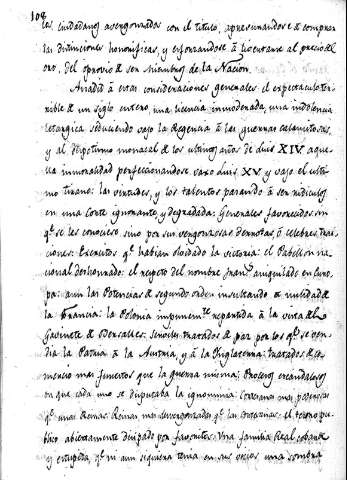 108
los ciudadanos avergonzados con el titulo, apresurandose à comprar
las distinciones honorificas, y esforzandose à libertarse al precio del
oro, del oprovio de ser miembros de la Nacion.
Añadid à estas consideraciones generales el espectaculo ter-
rible de un siglo entero, una licencia inmoderada, una indolencia
letargica reduciendo vajo la Regencia à las guerras calamitosas,
y al despotismo monacal de los ultimos años de Luis XIV. aque-
lla inmoralidad perfeccionandose vaxo Luis XV y vajo el ulti-
mo tirano: las virtudes, y los talentos parando à ser ridiculos
en una Corte ignorante, y degradada: Generales favorecidos sin
q.e se les conociese, sino por sus vergonzosas derrotas, ò celebres trai-
ciones: Exercitos q.e habian olvidado la victoria: el Pabellon na-
cional deshonrado: el respeto del nombre Fran.s aniquilado en Euro-
pa: aun las Potencias de segundo orden insultando la nulidad de
la Francia: la Polonia impunem.te repartida à la vista del
Gavinete de Versalles: tratados de paz por los q.e se ven-
dia la Patria à la Austria, y à la Ynglaterra: tratados de co-
mercio mas funestos que la guerra misma: Procesos escandalosos
en que cada uno se disputaba la ignominia: Cortesanas mas poderosas
q.e unas Reinas: Reinas mas desvergonzadas q.e las cortesanas: el tesoro pu-
blico abiertamente disipado por favoritos: Una familia Real cobarde
y estupida, q.e ni aun siquiera tenia en sus vicios una sombra